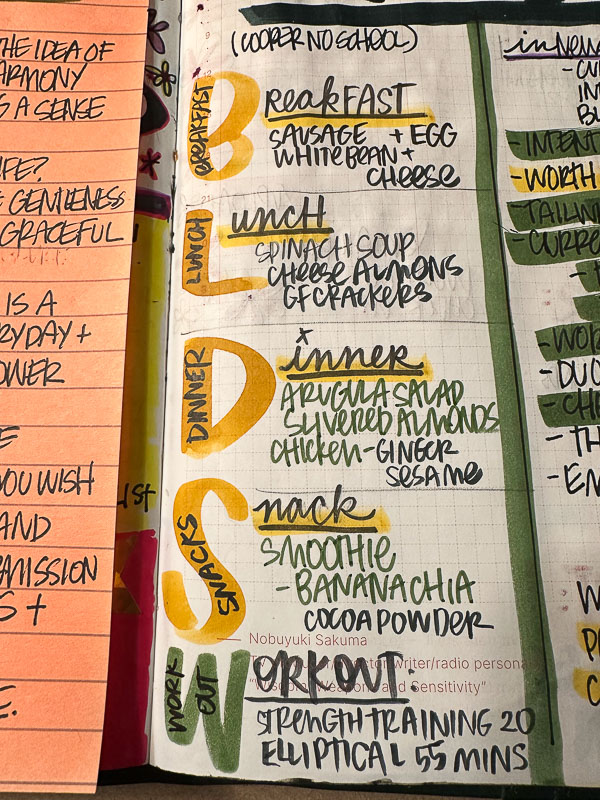 THE IDEA OF
ARMONY
S A SENSE
IFE?
GENTLENESS
GRACEFUL
IS A
RYDAY +
OWER
YOU WISH
AND
MISSION
S +
E.
LIST
(COOPER NO SCHOOL)
BREAKFAST
BREAKFAST
SAUSAGE + EGG
WHITE BEAN +
CHEESE
LUNCH
LUNCH
SPINACH SOUP
CHEESE ALMONS
GF CRACKERS
DINNER
Dinner
ARUGULA SALAD
SLIVERED ALMONDS
CHICKEN - GINGER
SESAME
SNACKS
Snack
SMOOTHIE
- BANANA CHIA
COCOA POWDER
Nobuyuki Sakuma
writer/radio persona
and Sensitivity"
WORK
OUT
WORKOUT:
STRENGTH TRAINING 20
ELLIPTICAL 55 MINS
- INTENT
- WORTH
- TAILWI
- CURRE
- WOR
- DUC
- CHE
- TH
- EN